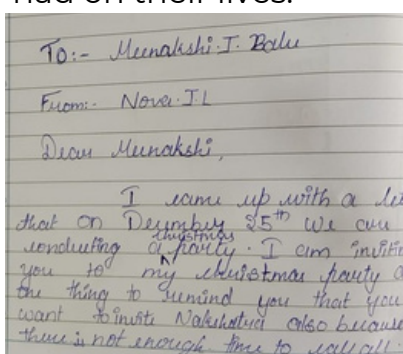 had on their lives.
To:- Meenakshi. J. Balu
From:- Nova. J. L
Dear Meenakshi,
I came up with a
that on 25th We are
conducting a christmas party. I am
you to my christmas party
the thing to remind you that you
want to invite also because
there is not enough time to call all.